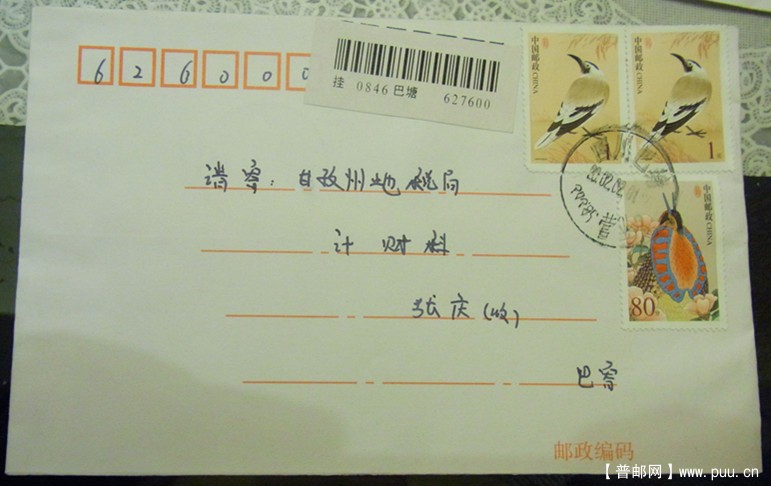 626000
挂 0846 巴塘 627600
中国邮政 CHINA
中国邮政 CHINA
1元
中国邮政 CHINA
80
请寄：甘孜州地税局
计财科
张庆（收）
巴寄
邮政编码
【普邮网】www.puu.cn